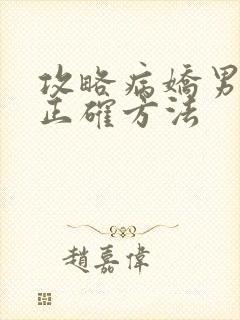 攻略病嬌男
正確方法
趙嘉偉